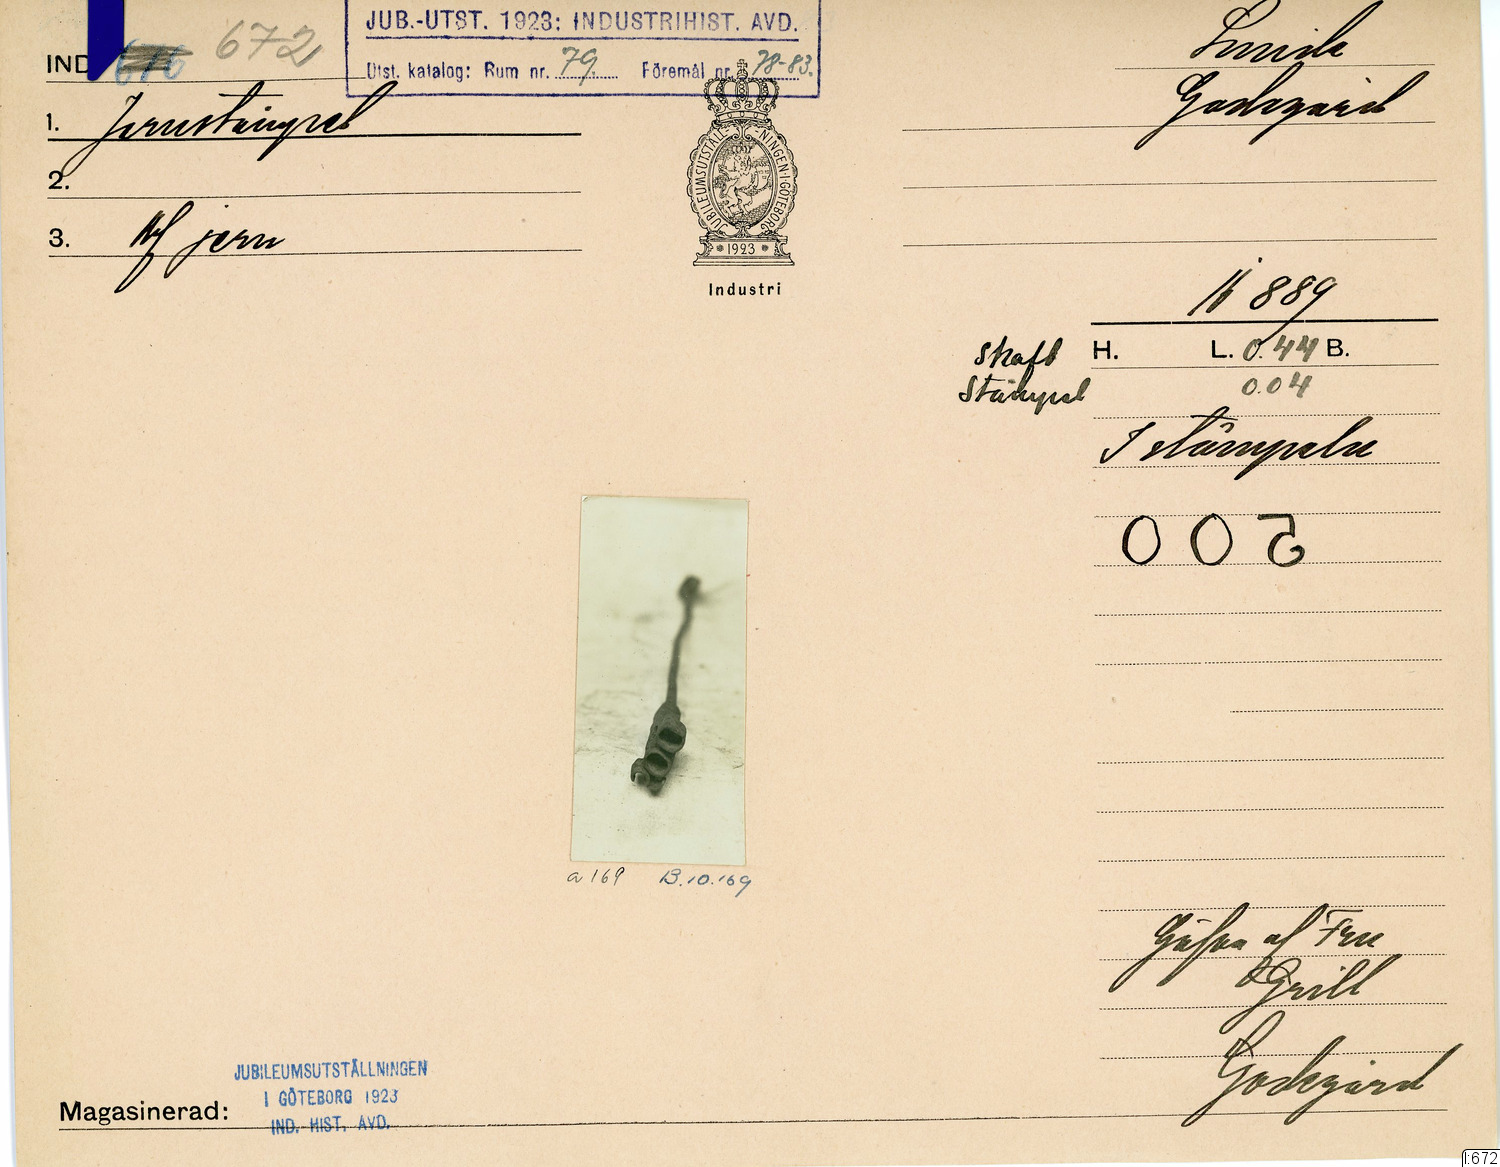 JUB.-UTST. 1923: INDUSTRIHIST. AVD.
Utst. katalog: Rum nr. 79. Föremål nr. 78-83.
IND 672
1. Jernstämpel
2.
3. Af jern
JUBILEUMSUTSTÄLLNINGEN·I·GÖTEBORG
1923
Industri
Smide
Godegård
889
Skaft H. L. 0.44 B.
Stämpel 0.04
I stämpeln
00 5
a 169 B.10.169
Gåfva af Fru
Grill
Godegård
JUBILEUMSUTSTÄLLNINGEN
I GÖTEBORG 1923
IND. HIST. AVD.
Magasinerad:
I:672